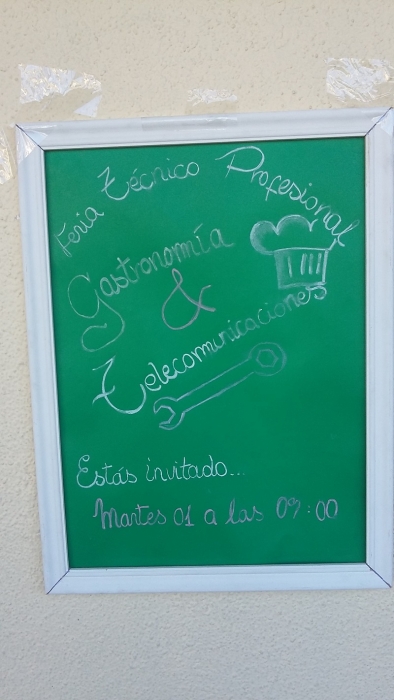 Feria Técnico Profesional
Gastronomía
&
Telecomunicaciones
Estás invitado...
Martes 01 a las 09:00